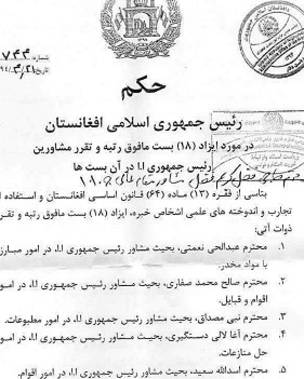 ۷۴۴
۹۴/۳/۲۱
حکم
رئیس جمهوری اسلامی افغانستان
در مورد ایزاد (۱۸) بست مافوق رتبه و تقرر مشاورین
رئیس جمهوری ا.ا در آن بست ها
بتاسی از فقره (۱۳) ماده (۶۴) قانون اساسی افغانستان و استفاده از
تجارب و اندوخته های علمی اشخاص خبره، ایزاد (۱۸) بست مافوق رتبه و تقرر
ذوات آتی:
۱. محترم عبدالحی نعمتی، بحیث مشاور رئیس جمهوری ا.ا، در امور مبارزه
با مواد مخدر.
۲. محترم صالح محمد صفاری، بحیث مشاور رئیس جمهوری ا.ا، در امور
اقوام و قبایل.
۳. محترم نبی مصداق، بحیث مشاور رئیس جمهوری ا.ا، در امور مطبوعات.
۴. محترم آغا لالی دستگیری، بحیث مشاور رئیس جمهوری ا.ا، در امور
حل منازعات.
۵. محترم اسدالله سعید، بحیث مشاور رئیس جمهوری ا.ا، در امور اقوام.